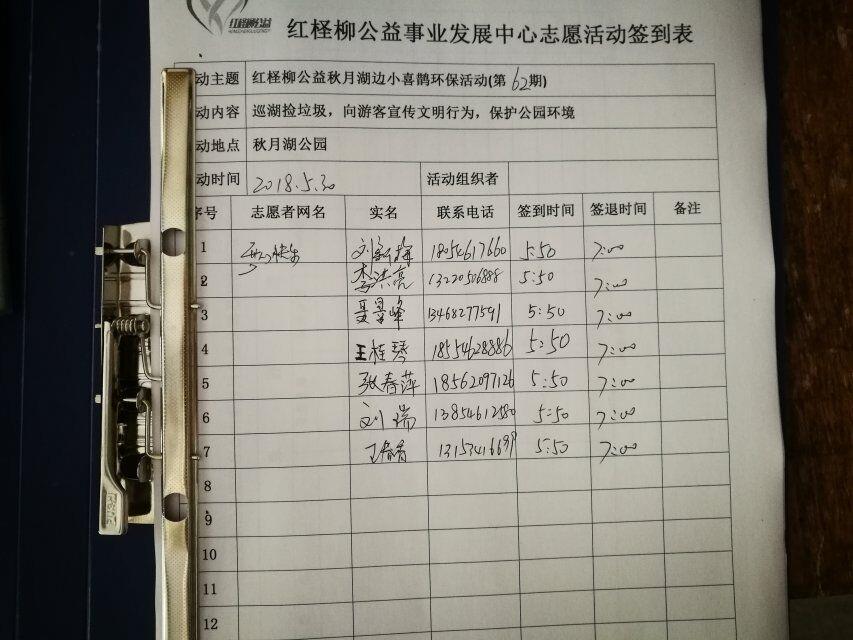 红柽柳公益事业发展中心志愿活动签到表
动主题 红柽柳公益秋月湖边小喜鹊环保活动(第62期)
动内容 巡湖捡垃圾，向游客宣传文明行为，保护公园环境
动地点 秋月湖公园
动时间 2018.5.30 活动组织者
序号 志愿者网名 实名 联系电话 签到时间 签退时间 备注
1 18054617660 5:50 7:00
2 李洪亮 13220506888 5:50 7:00
3 聂景峰 13468277591 5:50 7:00
4 王桂琴 18554628886 5:50 7:00
5 张春萍 18562097126 5:50 7:00
6 刘瑞 13854612580 5:50 7:00
7 5:50 7:00
8
9
10
11
12